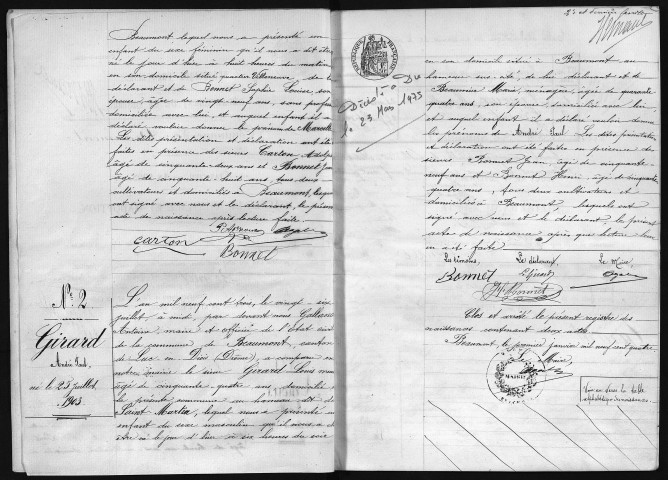 Beaumont lequel nous a présenté un
enfant du sexe féminin qu'il nous a dit être
né le jour d'hier à huit heures du matin
en son domicile situé quartier Villeneuve de
déclarant et de Bonnet Sophie Louise, son
épouse, âgée de vingt neuf ans, sans profes
domiciliée avec lui et auquel enfant il a
déclaré vouloir donner le prénom de Marcelle
Les dites présentation et déclaration ont été
faites en présence des sieurs Carton Adolphe
âgé de cinquante deux ans et Bonnet
âgé de cinquante huit ans, tous deux
cultivateurs et domiciliés à Beaumont, lesquels
ont signé avec nous et le déclarant, le présent
acte de naissance après lecture faite
Carton
Bonnet
N° 2
Girard
André Paul
né le 25 juillet
1903
L'an mil neuf cent trois, le vingt-six
juillet, à midi, par devant nous
Antoine, maire et officier de l'état civil
de la commune de Beaumont, canton
de Luc en Diois (Drôme), a comparu en
notre mairie le sieur Girard Louis
âgé de cinquante quatre ans, domicilié
la présente commune au hameau dit de
Saint Martin, lequel nous a présenté un
enfant du sexe masculin qu'il nous a dit
être né le jour d'hier à six heures du soir
Décédé
le 23 Mars 1975
2e et dernier feuillet
en son domicile situé à Beaumont au
hameau sus-cité, de lui déclarant et de
Beaumier Marie, ménagère, âgée de quarante
quatre ans, son épouse domiciliée avec lui
et auquel enfant il a déclaré vouloir donner
les prénoms de André Paul. Les dites présentation
et déclaration ont été faites en présence de
sieurs Bonnet Jean, âgé de cinquante
neuf ans et Bonnet Henri âgé de cinquante
quatre ans, tous deux cultivateurs et
domiciliés à Beaumont lesquels ont
signé avec nous et le déclarant le présent
acte de naissance après que lecture leur
en a été faite
Les témoins, Le déclarant Le Maire,
Bonnet
Bonnet
Clos et arrêté le présent registre des
naissances contenant deux actes
Beaumont, le premier janvier mil neuf cent quatre
Le Maire
MAIRIE
Voir en dessus la table
alphabétique des naissances.